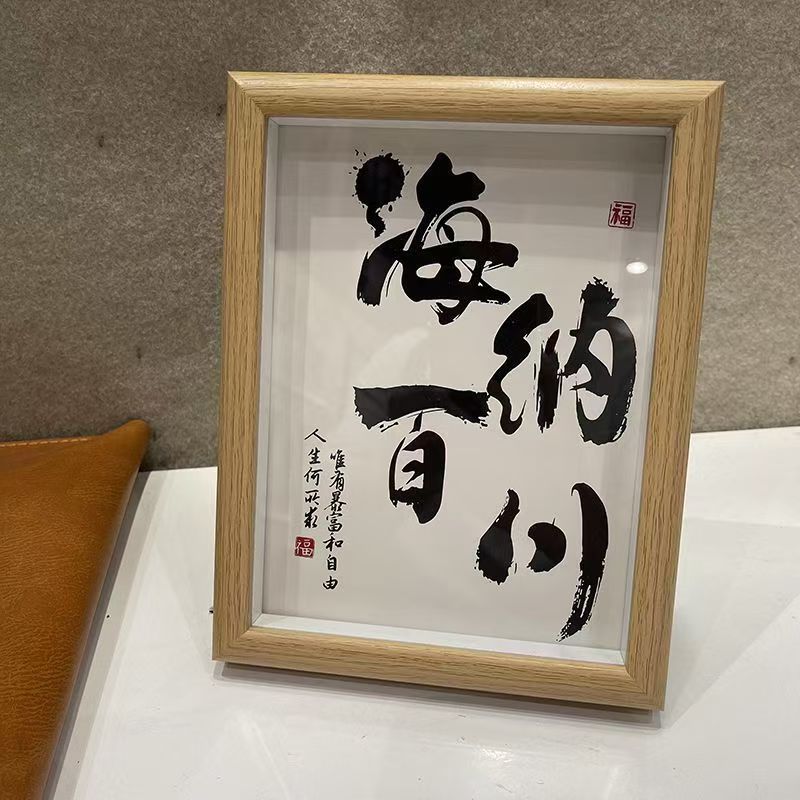 福
海纳百川
人生何所求
唯有暴富和自由
福